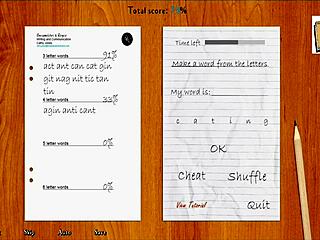 Total score: 7%
Writing and Communication
3 letter words 91%
act ant can cat gin
git nag nit tic tan
tin
4 letter words 33%
agin anti cant
5 letter words 0%
6 letter words 0%
Time left
Make a word from the letters
My word is:
c a t i n g
OK
Cheat Shuffle
View Tutorial Quit
Skip Auto Save